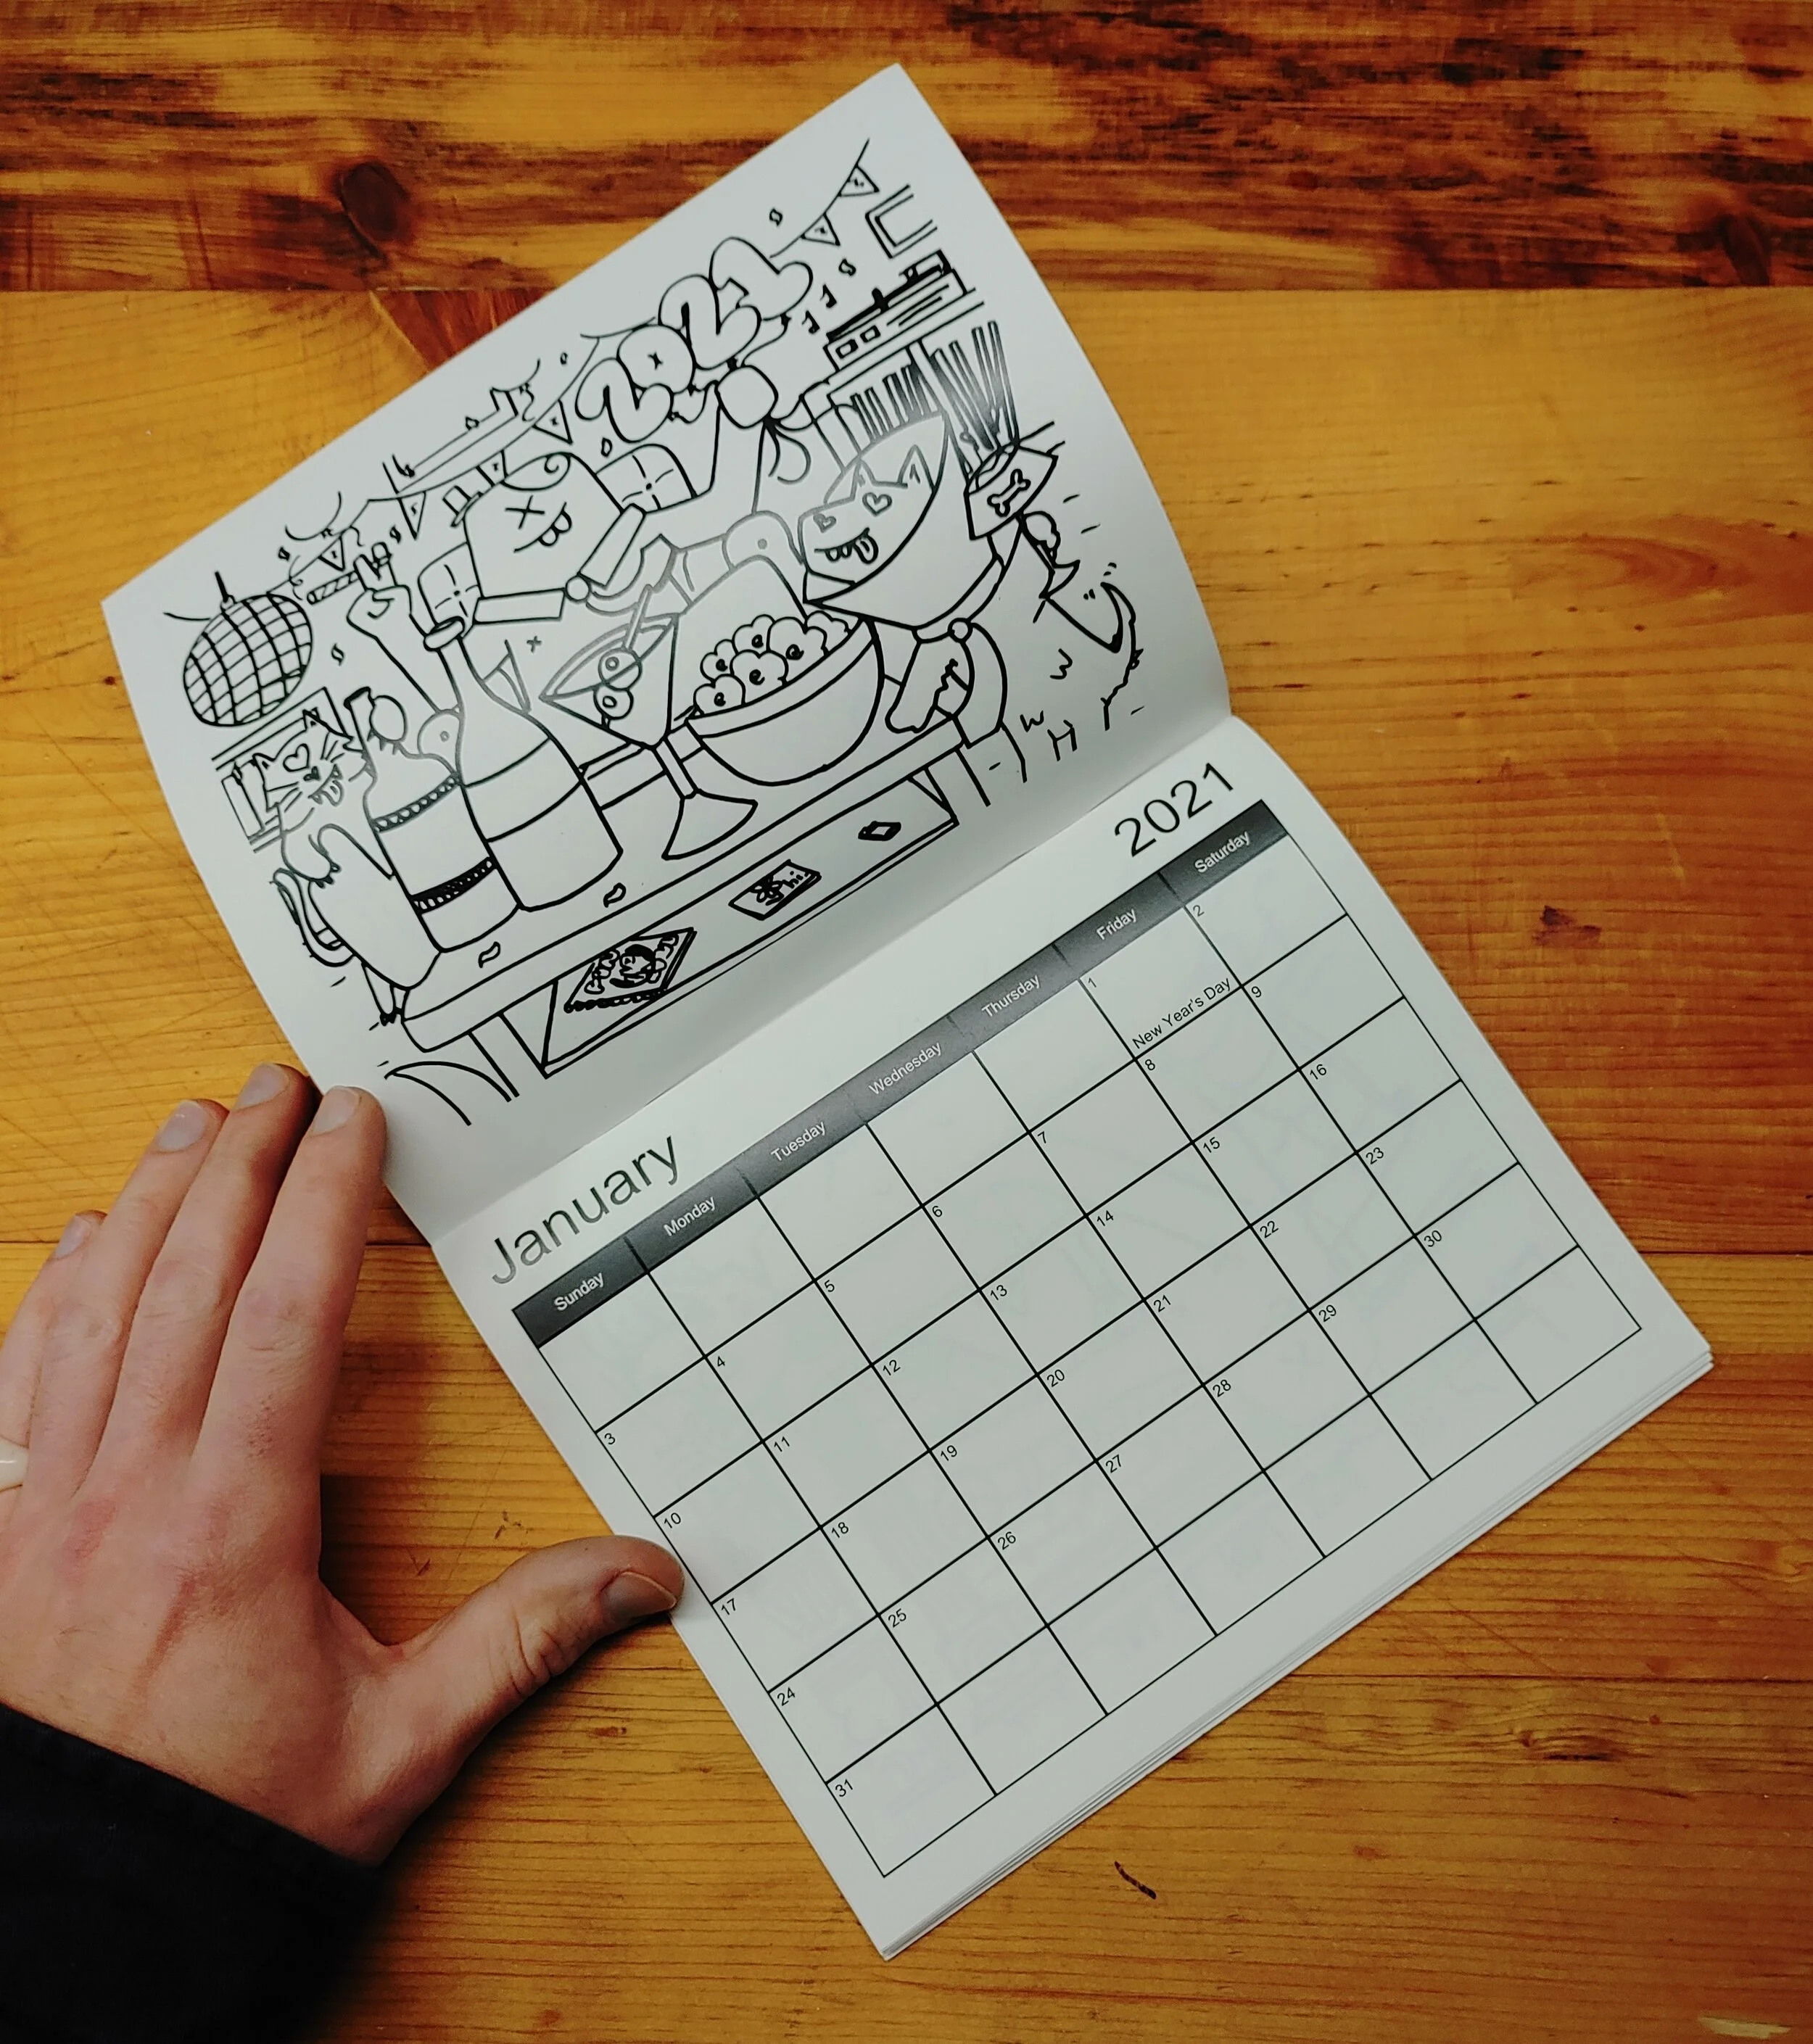 2021
hi.
January 2021
Sunday Monday Tuesday Wednesday Thursday Friday Saturday
1 2
New Year's Day
3 4 5 6 7 8 9
10 11 12 13 14 15 16
17 18 19 20 21 22 23
24 25 26 27 28 29 30
31